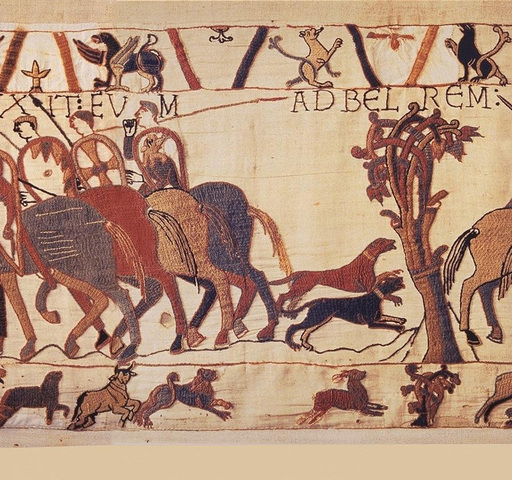 XIT: EV M AD BEL REM: